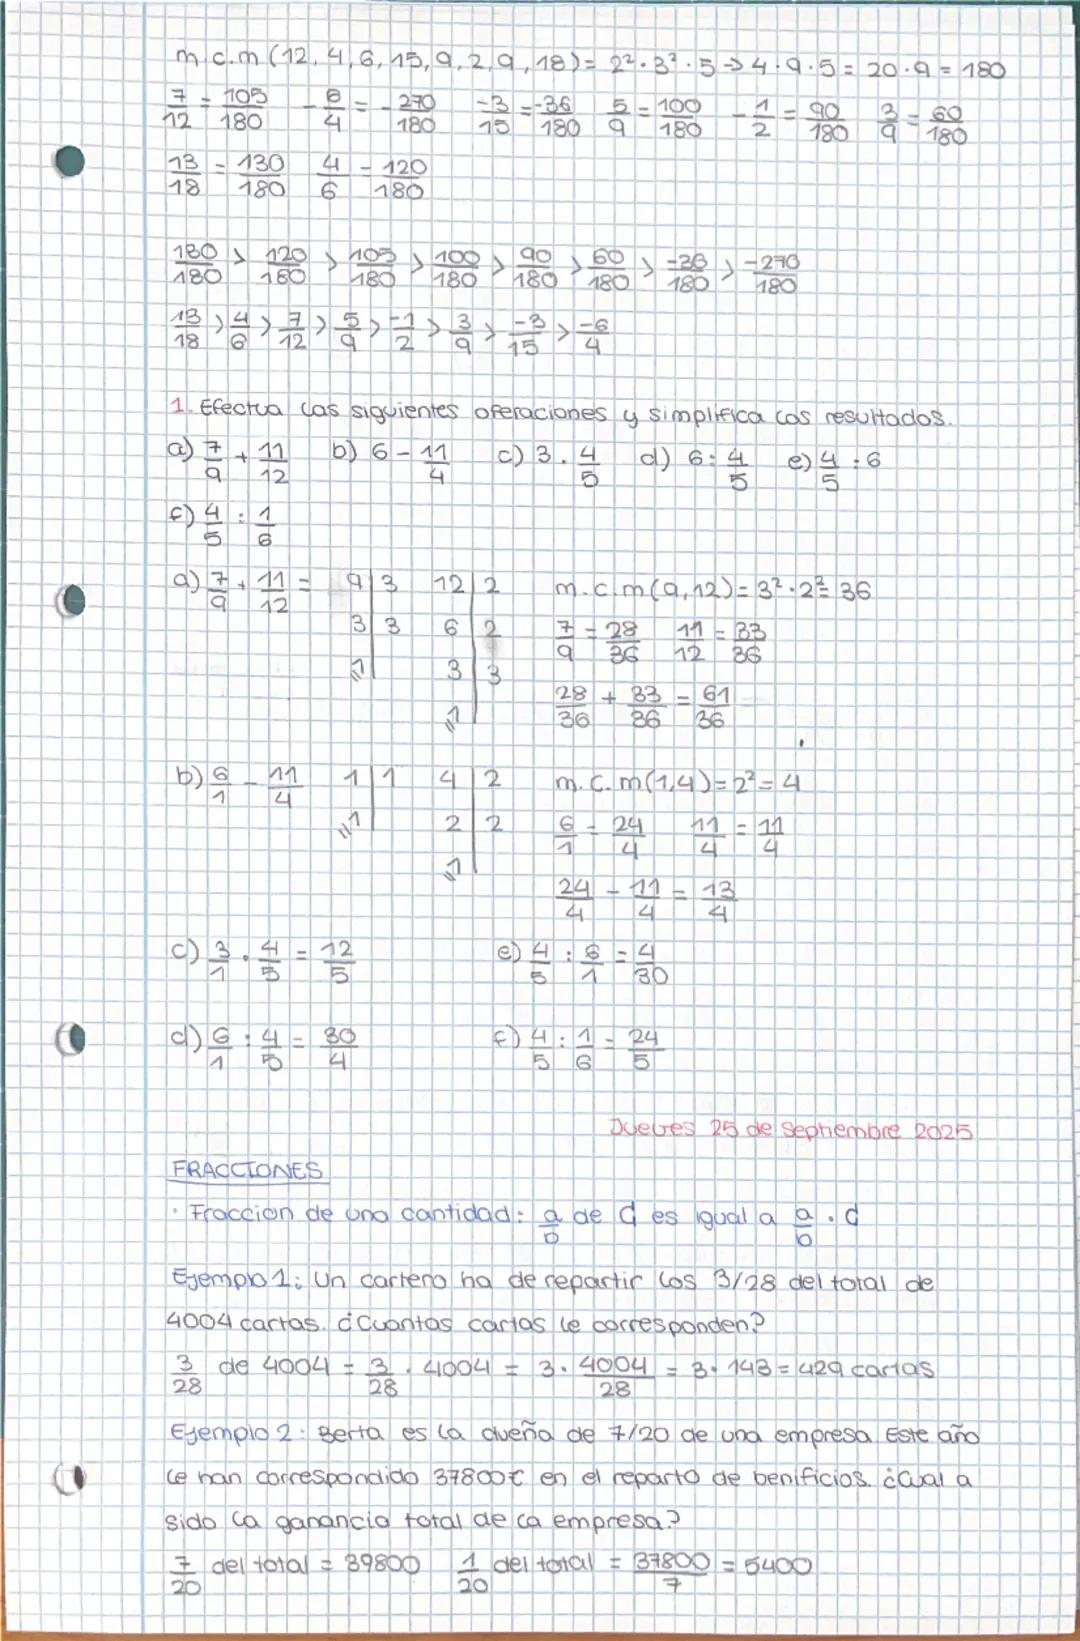 m.c.m (12, 4, 6, 15, 9, 2, 9, 18) = 2² · 3² · 5 → 4 · 9 · 5 = 20 · 9 = 180
7/12 = 105/180 - 6/4 = - 270/180 -3/15 = -36/180 5/9 = 100/180 - 1/2 = 90/180 3/9 = 60/180
13/18 = 130/180 4/6 = 120/180
130/180 > 120/180 > 105/180 > 100/180 > 90/180 > 60/180 > -36/180 > -270/180
13/18 > 4/6 > 7/12 > 5/9 > -1/2 > 3/9 > -3/15 > -6/4
1. Efectua las siguientes operaciones y simplifica los resultados.
a) 7/9 + 11/12 b) 6 - 11/4 c) 3 · 4/5 d) 6 : 4/5 e) 4/5 : 6
f) 4/5 : 1/6
a) 7/9 + 11/12 = 9|3 12|2 m.c.m (9, 12) = 3² · 2² = 36
3|3 6|2 7/9 = 28/36 11/12 = 33/36
1| 3|3
28/36 + 33/36 = 61/36
1|
b) 6/1 - 11/4 1|1 4|2 m.c.m (1,4) = 2² = 4
1 2|2 6/1 = 24/4 11/4 = 11/4
1|
24/4 - 11/4 = 13/4
c) 3/1 · 4/5 = 12/5 e) 4/5 : 6/1 = 4/30
d) 6/1 : 4/5 = 30/4 f) 4/5 : 1/6 = 24/5
Jueves 25 de Septiembre 2025
FRACCIONES
· Fraccion de una cantidad: a/b de C es igual a a/b · C
Ejemplo 1: Un cartero ha de repartir los 3/28 del total de
4004 cartas. ¿Cuantas cartas le corresponden?
3/28 de 4004 = 3/28 · 4004 = 3 · 4004/28 = 3 · 143 = 429 cartas
Ejemplo 2: Berta es la dueña de 7/20 de una empresa. Este año
le han correspondido 37800€ en el reparto de benificios. ¿Cual a
sido la ganancia total de la empresa?
7/20 del total = 39800 1/20 del total = 37800/7 = 5400